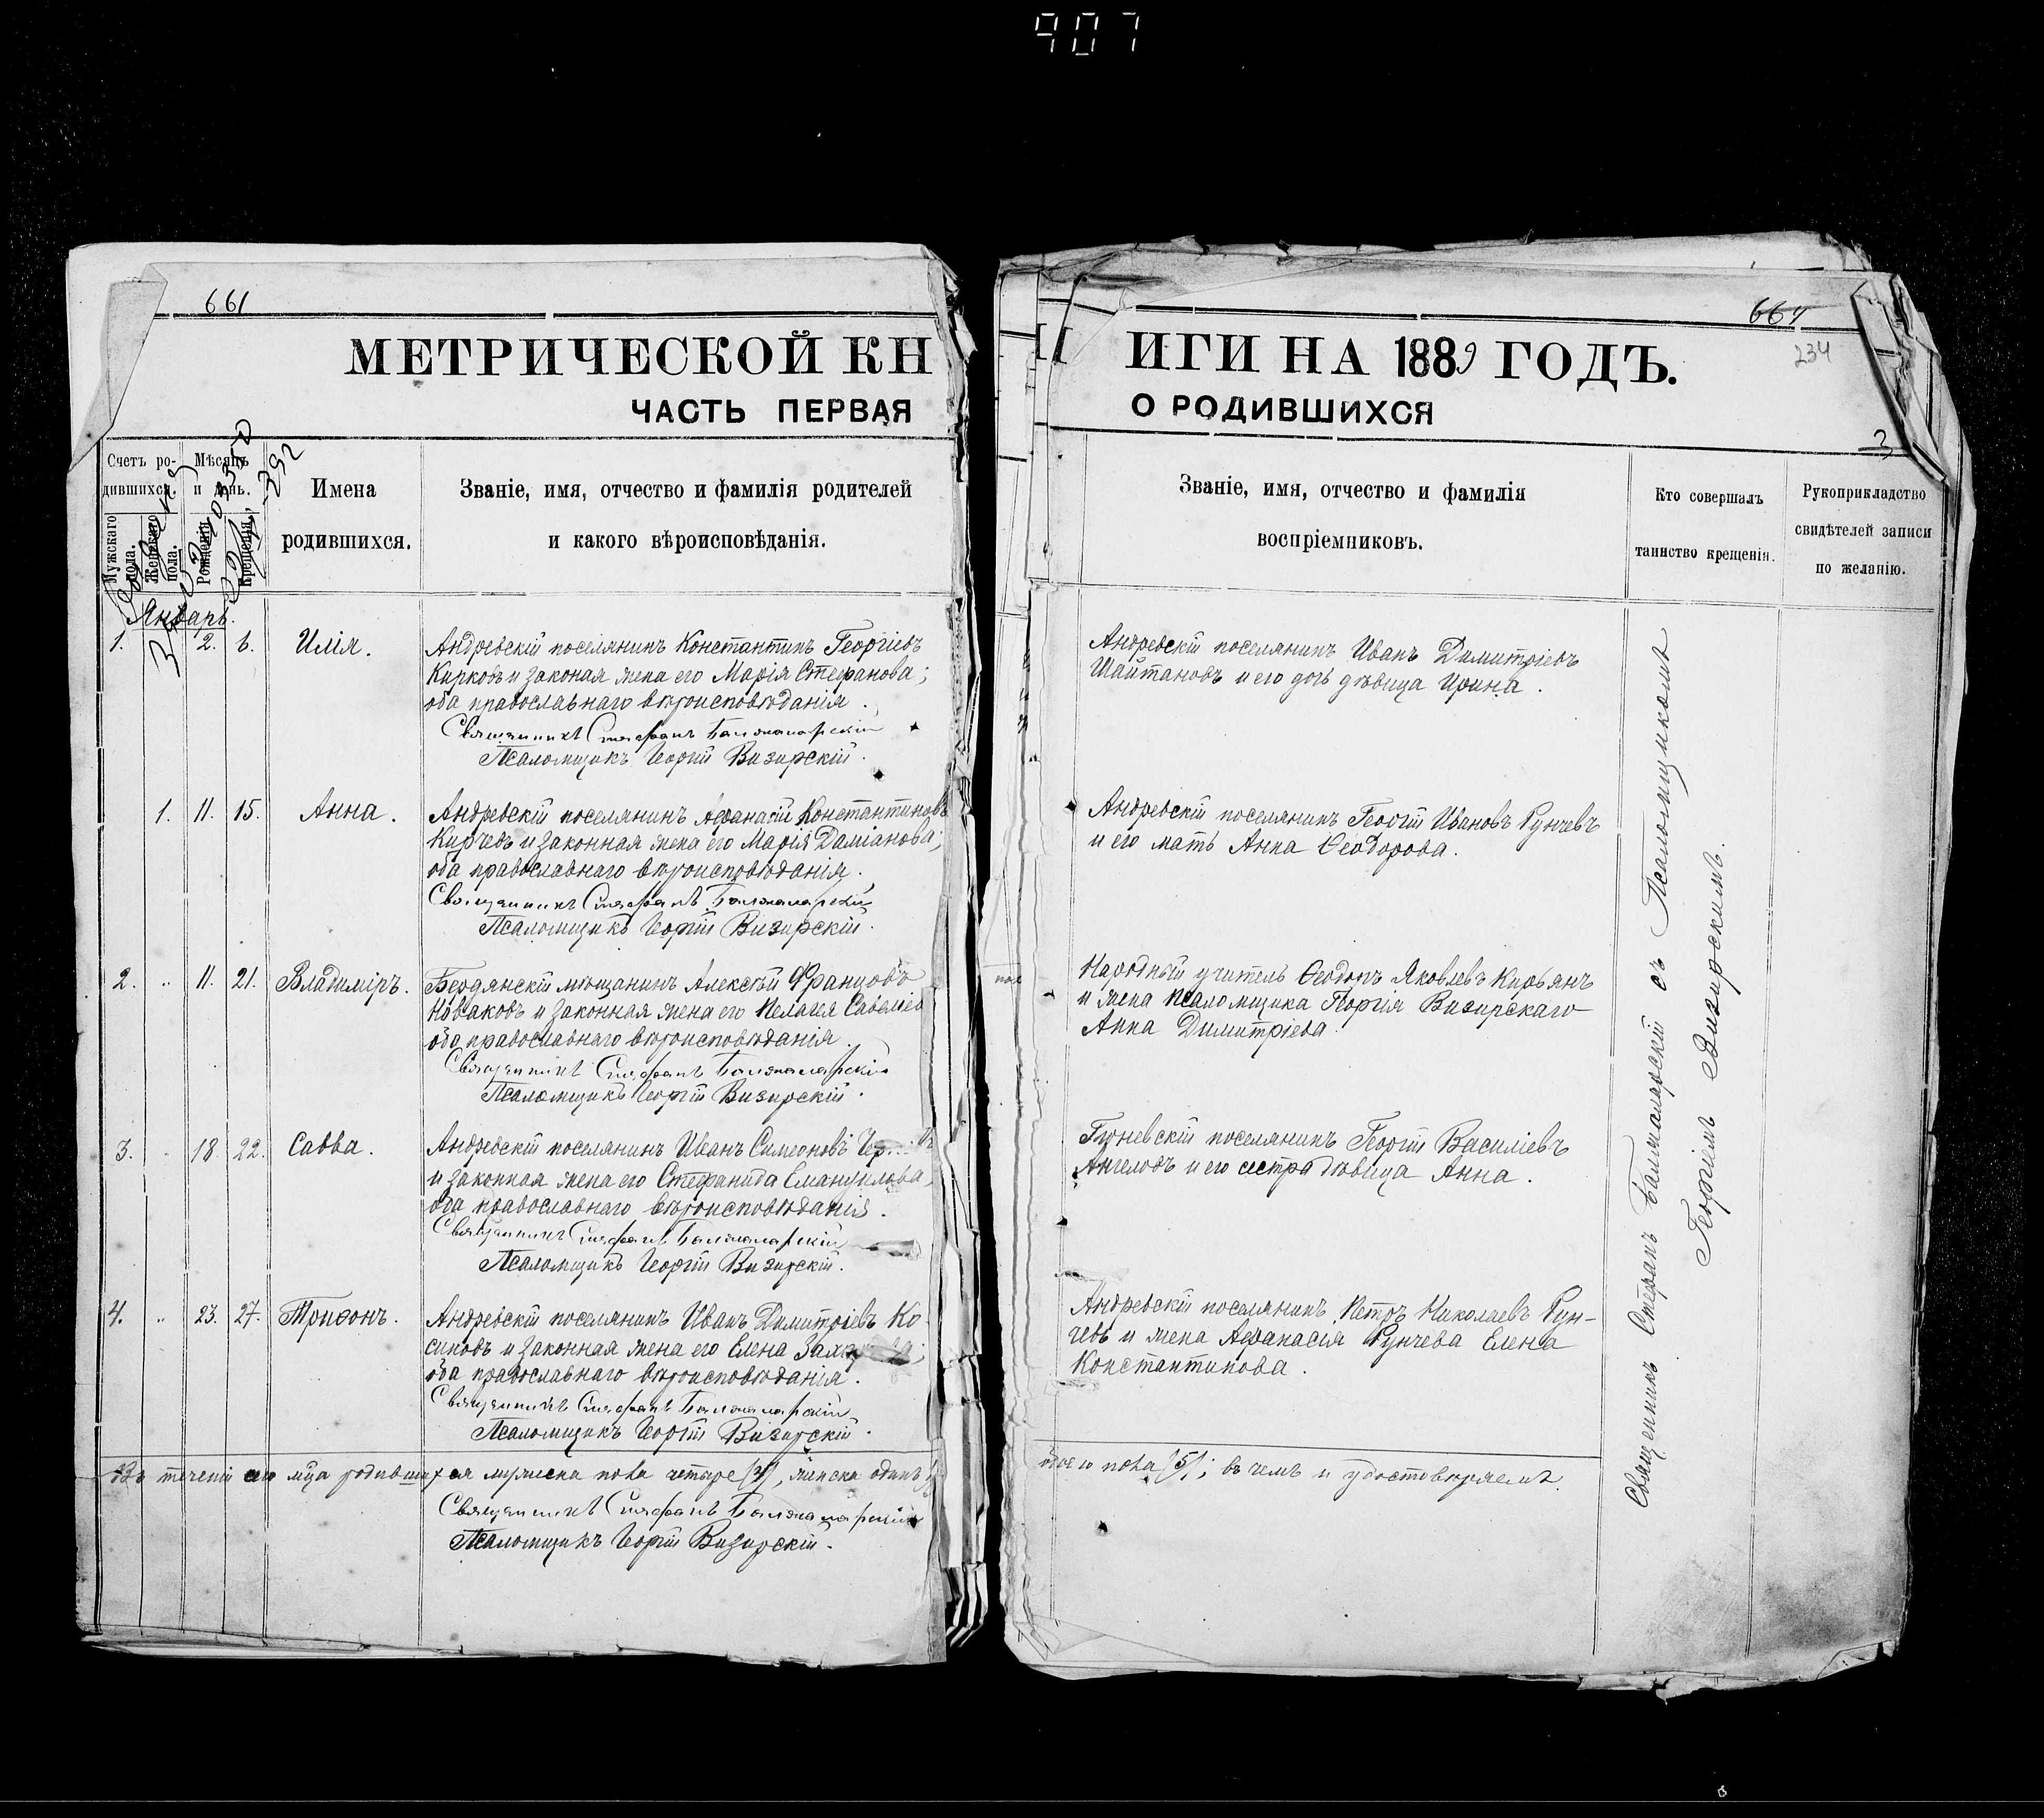 907
661
МЕТРИЧЕСКОЙ КН
ЧАСТЬ ПЕРВАЯ
Счетъ ро-
дившихся.
Мужскаго пола.
Женскаго пола.
Мѣсяцъ
и день.
Рожденія.
Крещенія.
Имена
родившихся.
Званіе, имя, отчество и фамилія родителей
и какого вѣроисповѣданія.
Январь.
1. 2. 6. Илія.
Андревскій поселянинъ Константинъ Георгіевъ
Кирковъ и законая жена его Марія Стефанова;
оба православнаго вѣроисповѣданія.
Священникъ Стефанъ Балжаларскій
Псаломщикъ Георгій Визирскій.
1. 11. 15. Анна.
Андревскій поселянинъ Афанасій Константиновъ
Кирчевъ и законная жена его Марія Даміанова;
оба православнаго вѣроисповѣданія.
Священникъ Стефанъ Балжаларскій
Псаломщикъ Георгій Визирскій.
2. „ 11. 21. Владиміръ.
Бердянскій мѣщанинъ Алексѣй Францовъ
Новаковъ и законная жена его Пелагея Савеліев
оба православнаго вѣроисповѣданія.
Священникъ Стефанъ Балжаларскій
Псаломщикъ Георгій Визирскій.
3. „ 18. 22. Савва.
Андревскій поселянинъ Иванъ Симеоновъ
и законная жена его Стефанида Емануилова,
оба православнаго вѣроисповѣданія.
Священникъ Стефанъ Балжаларскій
Псаломщикъ Георгій Визирскій.
4. „ 23. 27. Трифонъ.
Андревскій поселянинъ Иванъ Димитріевъ Ко-
сиковъ и законная жена его Елена
оба православнаго вѣроисповѣданія.
Священникъ Стефанъ Балжаларскій
Псаломщикъ Георгій Визирскій.
Въ теченіи сего мца родившихся мужеска пола четыре (4), женска одинъ
Священникъ Стефанъ Балжаларскій
Псаломщикъ Георгій Визирскій.
664
234
3
ИГИ НА 1889 ГОДЪ.
О РОДИВШИХСЯ
Званіе, имя, отчество и фамилія
воспріемниковъ.
Кто совершалъ
таинство крещенія.
Рукоприкладство
свидѣтелей записи
по желанію.
Андревскій поселянинъ Иванъ Димитріевъ
Шайтановъ и его дочь дѣвица Ирина.
Андревскій поселянинъ Георгій Ивановъ Рунчевъ
и его мать Анна Ѳеодорова.
Народный учитель Ѳеодоръ Яковлевъ Кирьянъ
и жена псаломщика Георгія Визирскаго
Анна Димитріева.
Гюневскій поселянинъ Георгій Василіевъ
Ангеловъ и его сестра дѣвица Анна.
Андревскій поселянинъ Петръ Николаевъ Рун-
чевъ и жена Афанасія Рунчева Елена
Константинова.
обоего пола (5); въ чемъ и удостовѣряемъ.
Священникъ Стефанъ Балжаларскій съ Псаломщикомъ
Георгіемъ Визирскимъ.